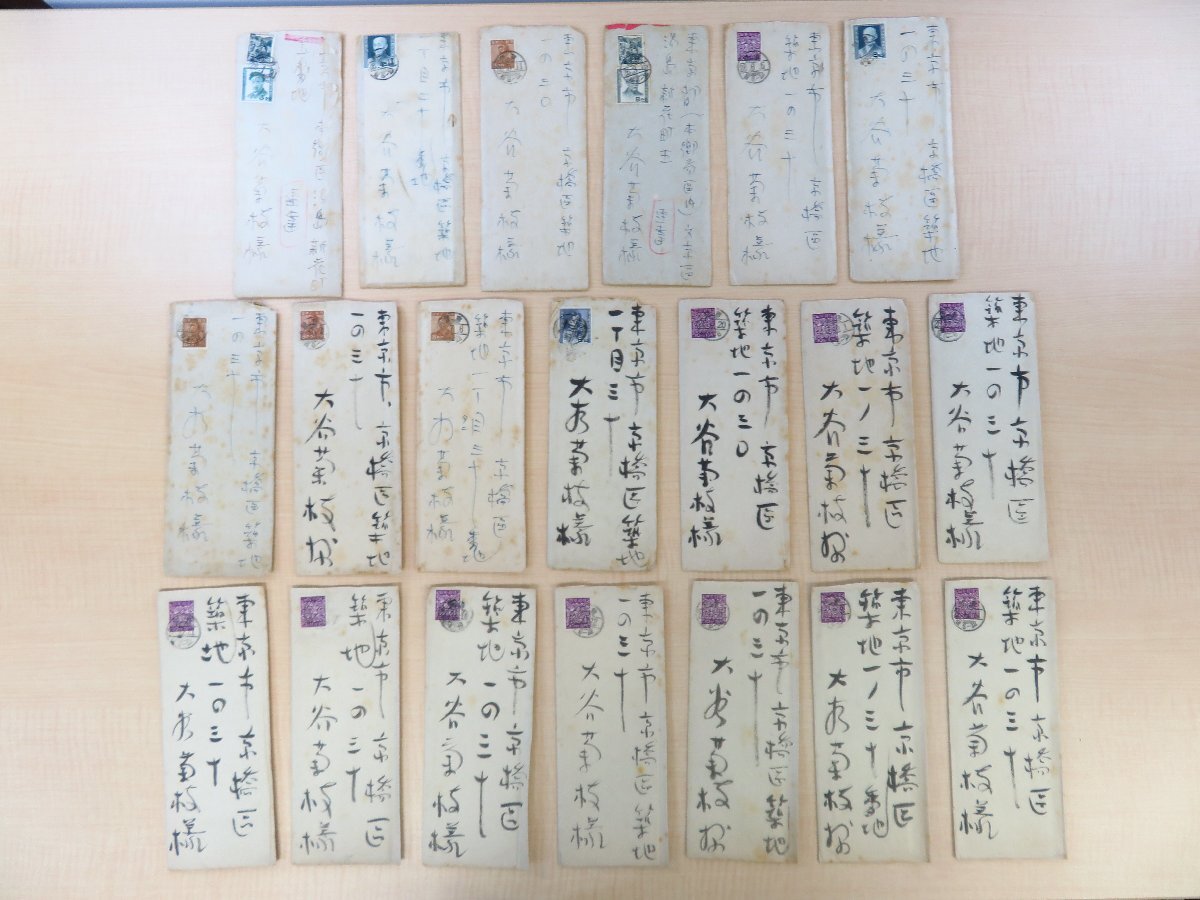 東京都(本郷局区内)文京区
湯島新花町
大谷菊枝様
東京市京橋区築地
一丁目三十
大谷菊枝様
東京市京橋区築地
一の三〇
大谷菊枝様
東京市京橋区
築地一の三十
大谷菊枝様
東京市京橋区築地
一の三十
大谷菊枝様
東京市京橋区築地
一の三十
大谷菊枝様
東京市京橋区築地
一の三十
大谷菊枝様
東京市京橋区
築地一丁目三十
大谷菊枝様
東京市京橋区築地
一丁目三十
大谷菊枝様
東京市京橋区
築地一の三〇
大谷菊枝様
東京市京橋区
築地一ノ三十
大谷菊枝様
東京市京橋区
築地一の三十
大谷菊枝様
東京市京橋区
築地一の三十
大谷菊枝様
東京市京橋区
築地一の三十
大谷菊枝様
東京市京橋区
築地一の三十
大谷菊枝様
東京市京橋区築地
一の三十
大谷菊枝様
東京市京橋区築地
一の三十
大谷菊枝様
東京市京橋区
築地一ノ三十番地
大谷菊枝様
東京市京橋区
築地一の三十
大谷菊枝様